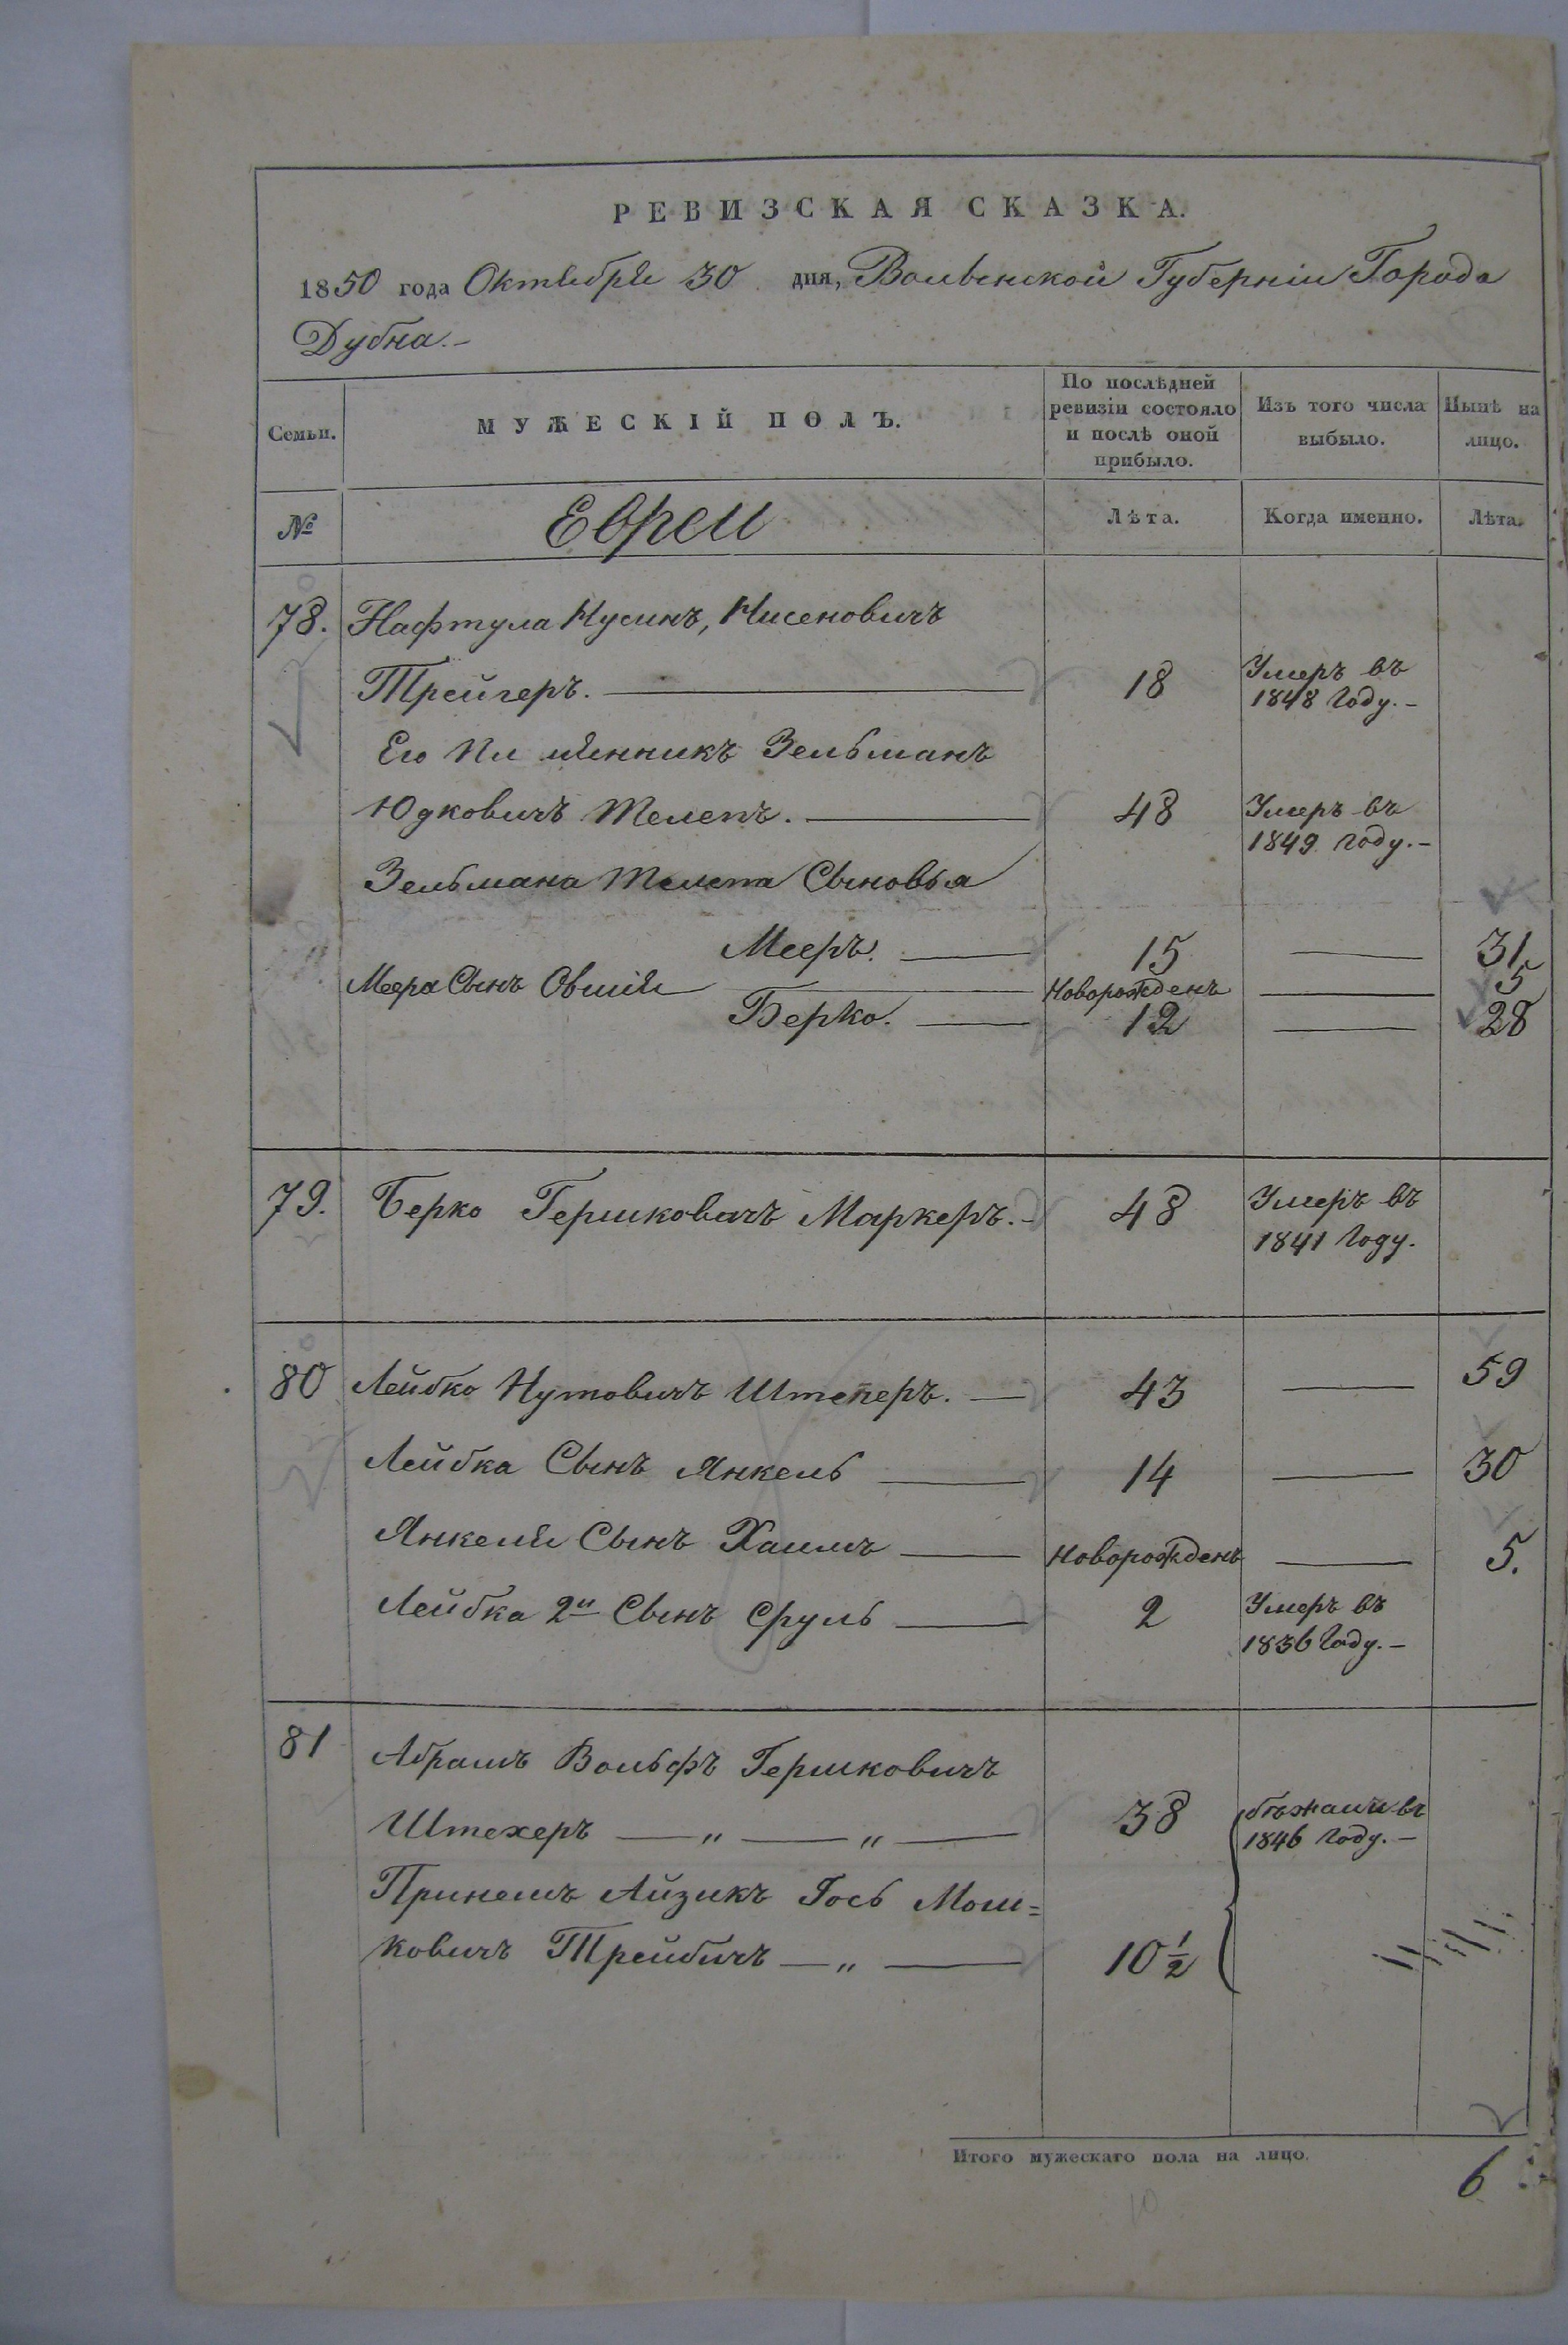 РЕВИЗСКАЯ СКАЗКА.
1850 года Октября 30 дня, Волынской Губерніи Города
Дубна.-
Семьи.
МУЖЕСКІЙ ПОЛЪ.
По послѣдней ревизіи состояло и послѣ оной прибыло.
Изъ того числа выбыло.
Нынѣ на лицо.
№
Евреи
Лѣта.
Когда именно.
Лѣта.
78. Нафтула Нусинъ, Нисеновичъ
Трейгеръ. 18 Умеръ въ 1848 Году.-
Его Пл мянникъ Зельманъ
Юдковичъ Телепъ. 48 Умеръ въ 1849 году.-
Зельмана Телепа Сыновья
Мееръ. 15 31
Меера Сынъ Овшія Новорожденъ 5
Берко. 12 28
79. Берко Гершковичъ Маркеръ.- 48 Умеръ въ 1841 Году.
80 Лейбко Нутовичъ Штеперъ. 43 59
Лейбка Сынъ Янкель 14 30
Янкеля Сынъ Хаимъ Новорожденъ 5.
Лейбка 2й Сынъ Сруль 2 Умеръ въ 1836 Году.-
81 Абрамъ Вольфъ Гершковичъ
Штехеръ — „ — „ — 38 бѣжали въ 1846 Году.-
Айзикъ Гось Мош=
ковичъ Трейбичъ — „ — 10 ½
Итого мужескаго пола на лицо.
6